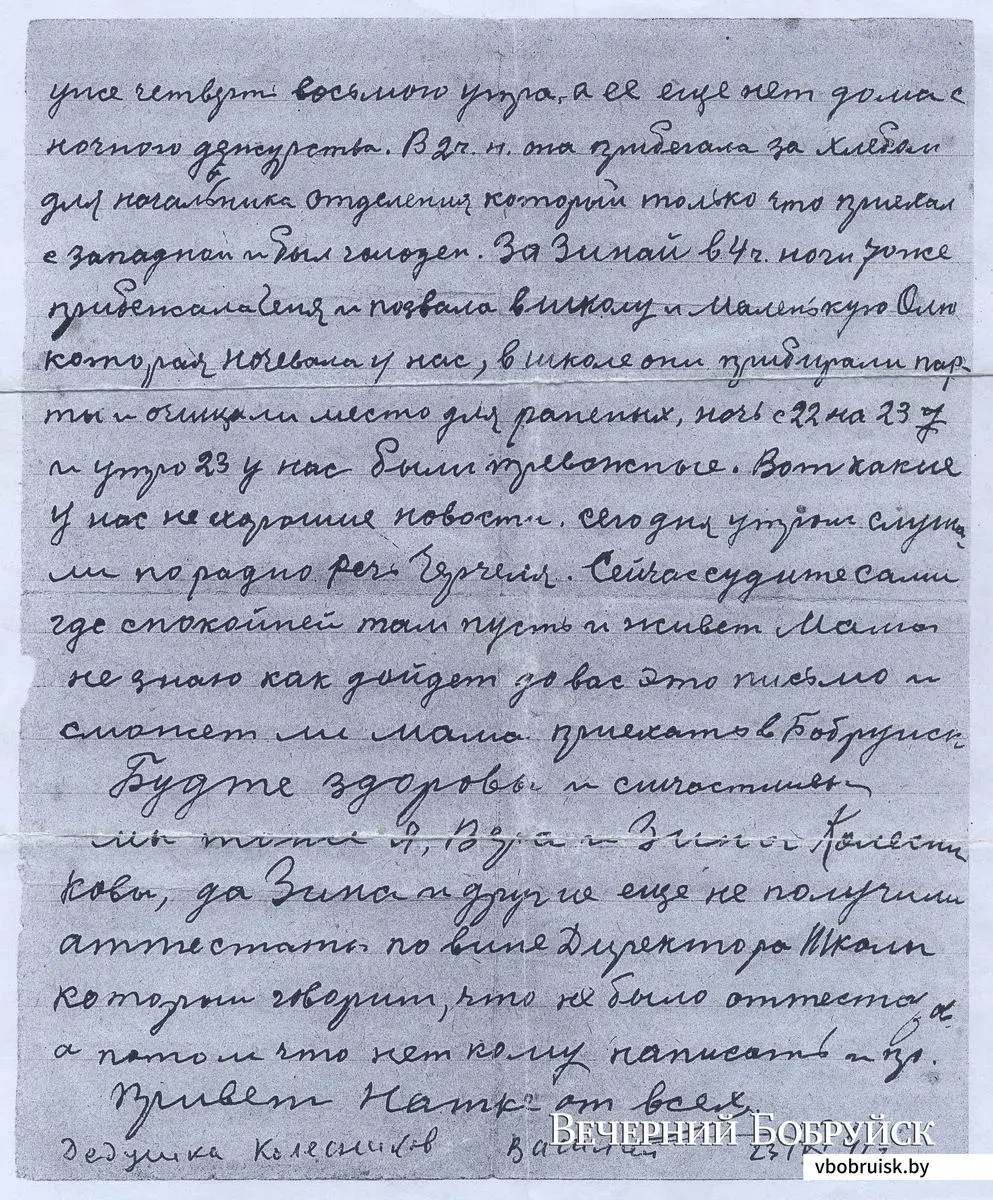 уже четверть восьмого утра, а ее еще нет дома с
ночного дежурства. В 2 ч. н. она прибегала за хлебом
для начальника отделения который только что приехал
с западной и был голоден. За Зинай в 4 ч. ночи тоже
прибежала Геня и позвала в школу и маленькую Олю
которая ночевала у нас, в школе они прибирали пар-
ты и очищали место для раненых, ночь с 22 на 23
и утро 23 у нас были тревожные. Вот какие
у нас не хорошие новости. сегодня утром слуша-
ли по радио речь Черчеля. Сейчас судите сами
где спокойней там пусть и живет Мама
не знаю как дойдет до вас это письмо и
сможет ли мама приехать в Бобруйск
Будте здоровы и счастливы
мы тоже Я, Вера и Зина Колесни
ковы, да Зина и другие еще не получили
аттестаты по вине Директора Школы
который говорит, что не было аттеста
а потом что нет кому написать и пр.
Привет от всех
Дедушка Колесников Василий
Вечерний Бобруйск
vbobruisk.by